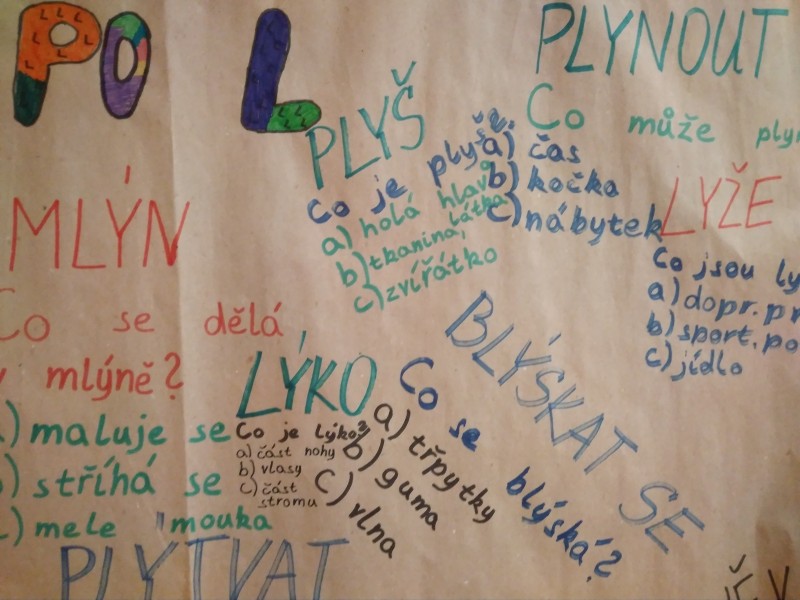 PO L
PLYNOUT
Co může
a) čas
b) kočka
c) nábytek
PLYŠ
Co je plyš?
a) holá hlava
b) tkanina, látka
c) zvířátko
MLÝN
Co se dělá
mlýně?
maluje se
stříhá se
mele mouka
LYŽE
Co jsou
a) dopr.
b) sport.
c) jídlo
LÝKO
Co je lýko?
a) část nohy
b) vlasy
c) část
stromu
BLÝSKAT SE
Co se blýská?
a) třpytky
b) guma
c) vlna
PLYTVAT